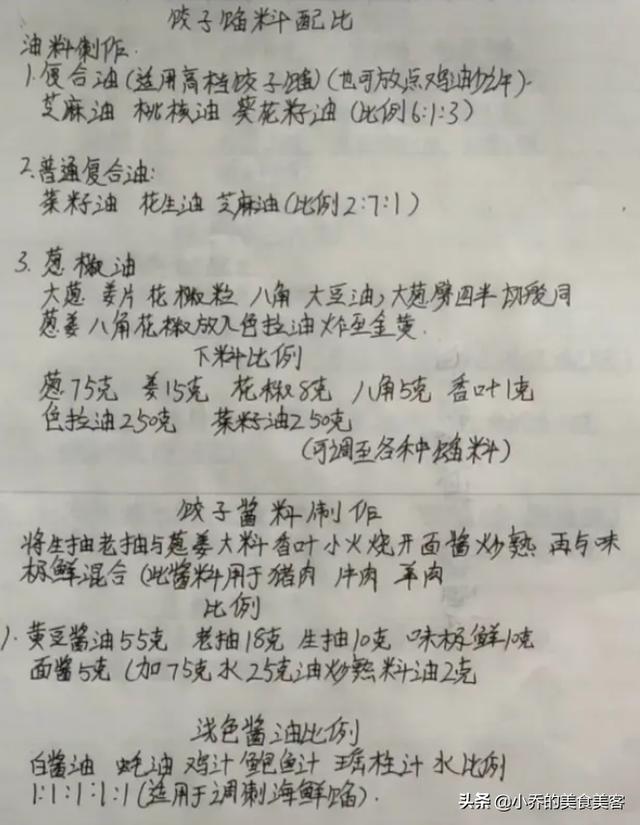 饺子馅料配比
油料制作.
1.复合油(适用高档饺子馅)(也可放点鸡油少许).
芝麻油 桃核油 葵花籽油 (比例6:1:3)
2.普通复合油:
菜籽油 花生油 芝麻油(比例2:7:1)
3.葱椒油
大葱 姜片 花椒粒 八角 大豆油,大葱劈四半切段同
葱姜八角花椒放入色拉油炸至金黄.
下料比例
葱75克 姜15克 花椒8克 八角5克 香叶1克
色拉油250克 菜籽油250克
(可调至各种馅料)
饺子酱料制作
将生抽老抽与葱姜大料香叶小火烧开面酱炒熟 再与味
极鲜混合(此酱料用于猪肉 牛肉 羊肉
比例
1.黄豆酱油55克 老抽18克 生抽10克 味极鲜10克
面酱5克(加75克水25克油炒熟料油2克
浅色酱油比例
白酱油 蚝油 鸡汁 鲍鱼汁 瑶柱汁 水比例
1:1:1:1:1(适用于调制海鲜馅).
头条 @小乔的美食美客